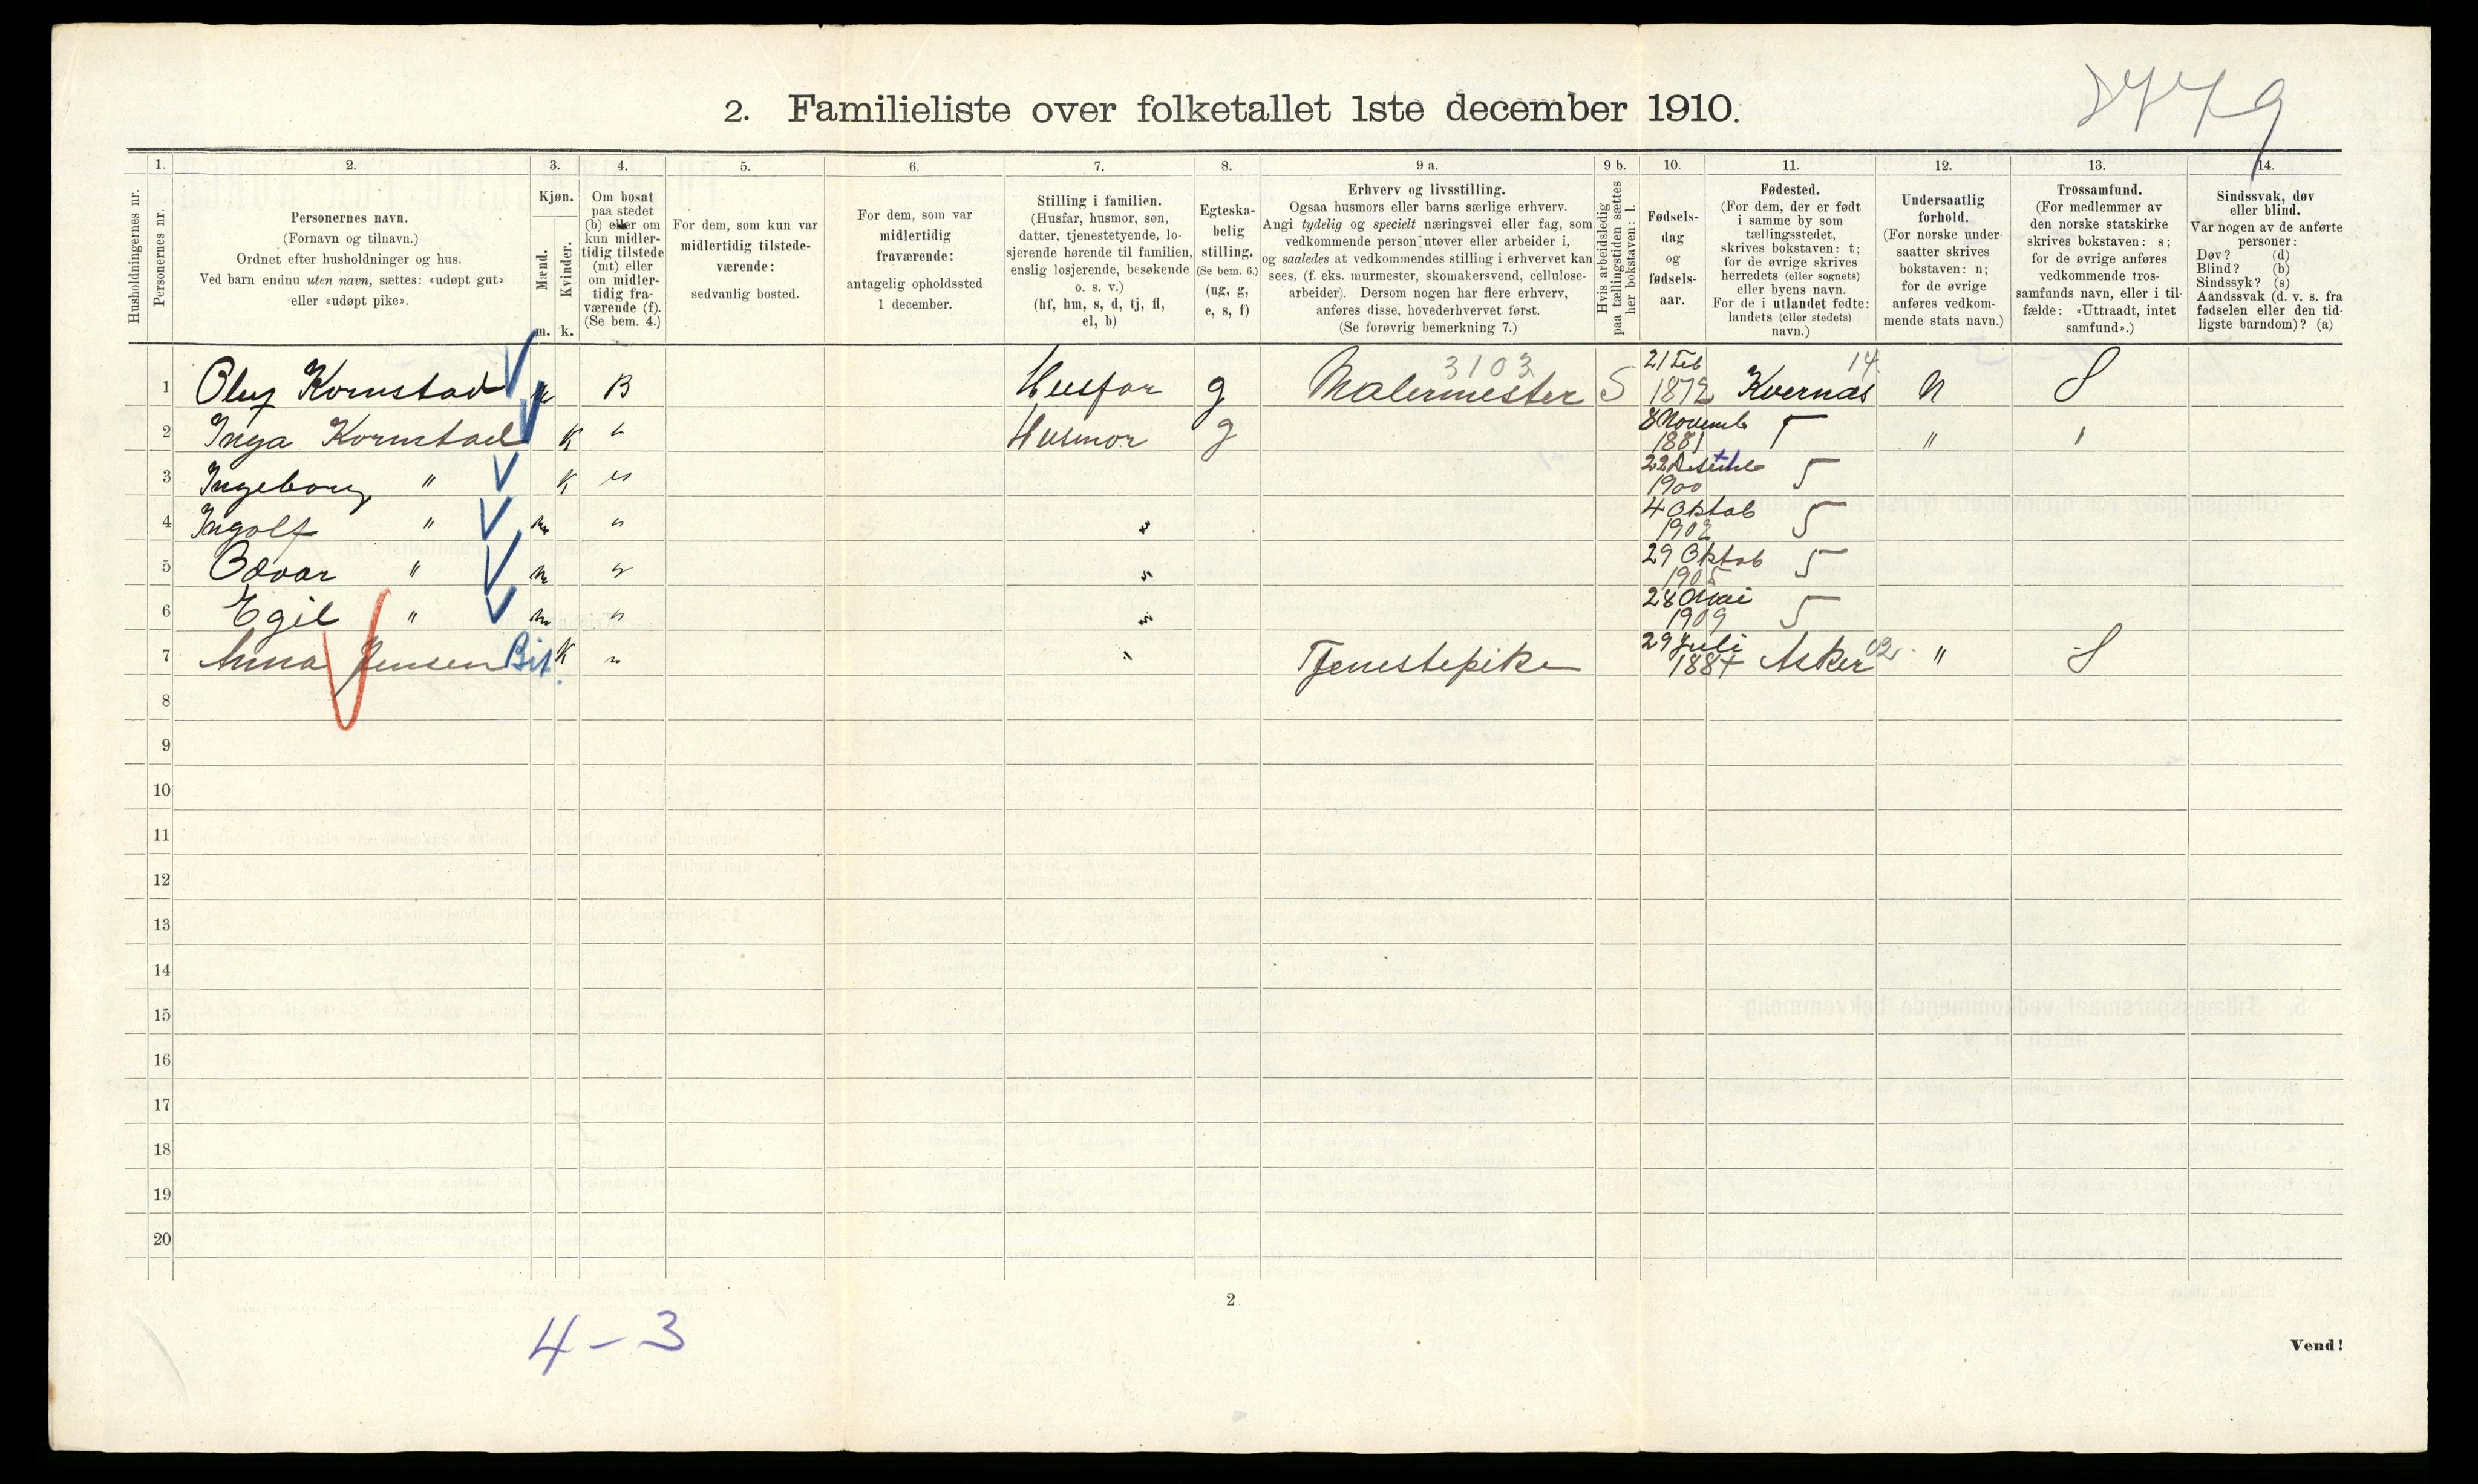 8779
2. Familieliste over folketallet 1ste december 1910.
Husholdningernes nr.
1.
Personernes nr.
2.
Personernes navn.
(Fornavn og tilnavn.)
Ordnet efter husholdninger og hus.
Ved barn endnu uten navn, sættes: «udøpt gut»
eller «udøpt pike».
3.
Kjøn.
Mænd.
Kvinder.
m. k.
4.
Om bosat
paa stedet
(b) eller om
kun midler-
tidig tilstede
(mt) eller
om midler-
tidig fra-
værende (f).
(Se bem. 4.)
5.
For dem, som kun var
midlertidig tilstede-
værende:
sedvanlig bosted.
6.
For dem, som var
midlertidig
fraværende:
antagelig opholdssted
1 december.
7.
Stilling i familien.
(Husfar, husmor, søn,
datter, tjenestetyende, lo-
sjerende hørende til familien,
enslig losjerende, besøkende
o. s. v.)
(hf, hm, s, d, tj, fl,
el, b)
8.
Egteska-
belig
stilling.
(Se bem. 6.)
(ug, g,
e, s, f)
9 a.
Erhverv og livsstilling.
Ogsaa husmors eller barns særlige erhverv.
Angi tydelig og specielt næringsvei eller fag, som
vedkommende person utøver eller arbeider i,
og saaledes at vedkommendes stilling i erhvervet kan
sees, (f. eks. murmester, skomakersvend, cellulose-
arbeider). Dersom nogen har flere erhverv,
anføres disse, hovederhvervet først.
(Se forøvrig bemerkning 7.)
9 b.
Hvis arbeidsledig
paa tællingstiden sættes
her bokstaven: l.
10.
Fødsels-
dag
og
fødsels-
aar.
11.
Fødested.
(For dem, der er født
i samme by som
tællingsstedet,
skrives bokstaven: t;
for de øvrige skrives
herredets (eller sognets)
eller byens navn.
For de i utlandet fødte:
landets (eller stedets)
navn.)
12.
Undersaatlig
forhold.
(For norske under-
saatter skrives
bokstaven: n;
for de øvrige
anføres vedkom-
mende stats navn.)
13.
Trossamfund.
(For medlemmer av
den norske statskirke
skrives bokstaven: s;
for de øvrige anføres
vedkommende tros-
samfunds navn, eller i til-
fælde: «Uttraadt, intet
samfund».)
14.
Sindssvak, døv
eller blind.
Var nogen av de anførte
personer:
Døv? (d)
Blind? (b)
Sindssyk? (s)
Aandssvak (d. v. s. fra
fødselen eller den tid-
ligste barndom)? (a)
1 Oluf Kornstad m B Husfar g 3103 Malermester S 21 Feb 1872 Kvernæs 14 N S
2 Inga Kornstad K " Husmor g 8 Novemb 1881 T " "
3 Ingeborg " K " 22 1900 T
4 Ingolf " m " " 4 Oktob 1902 T
5 Odvar " m " " 29 Oktob 1905 T
6 Egil " m " " 28 Mai 1909 T
7 Anna Jensen Bit. K " " Tjenestepike 29 Juli 1884 Asker 02 " S
8
9
10
11
12
13
14
15
16
17
18
19
20
2
4 - 3
Vend!